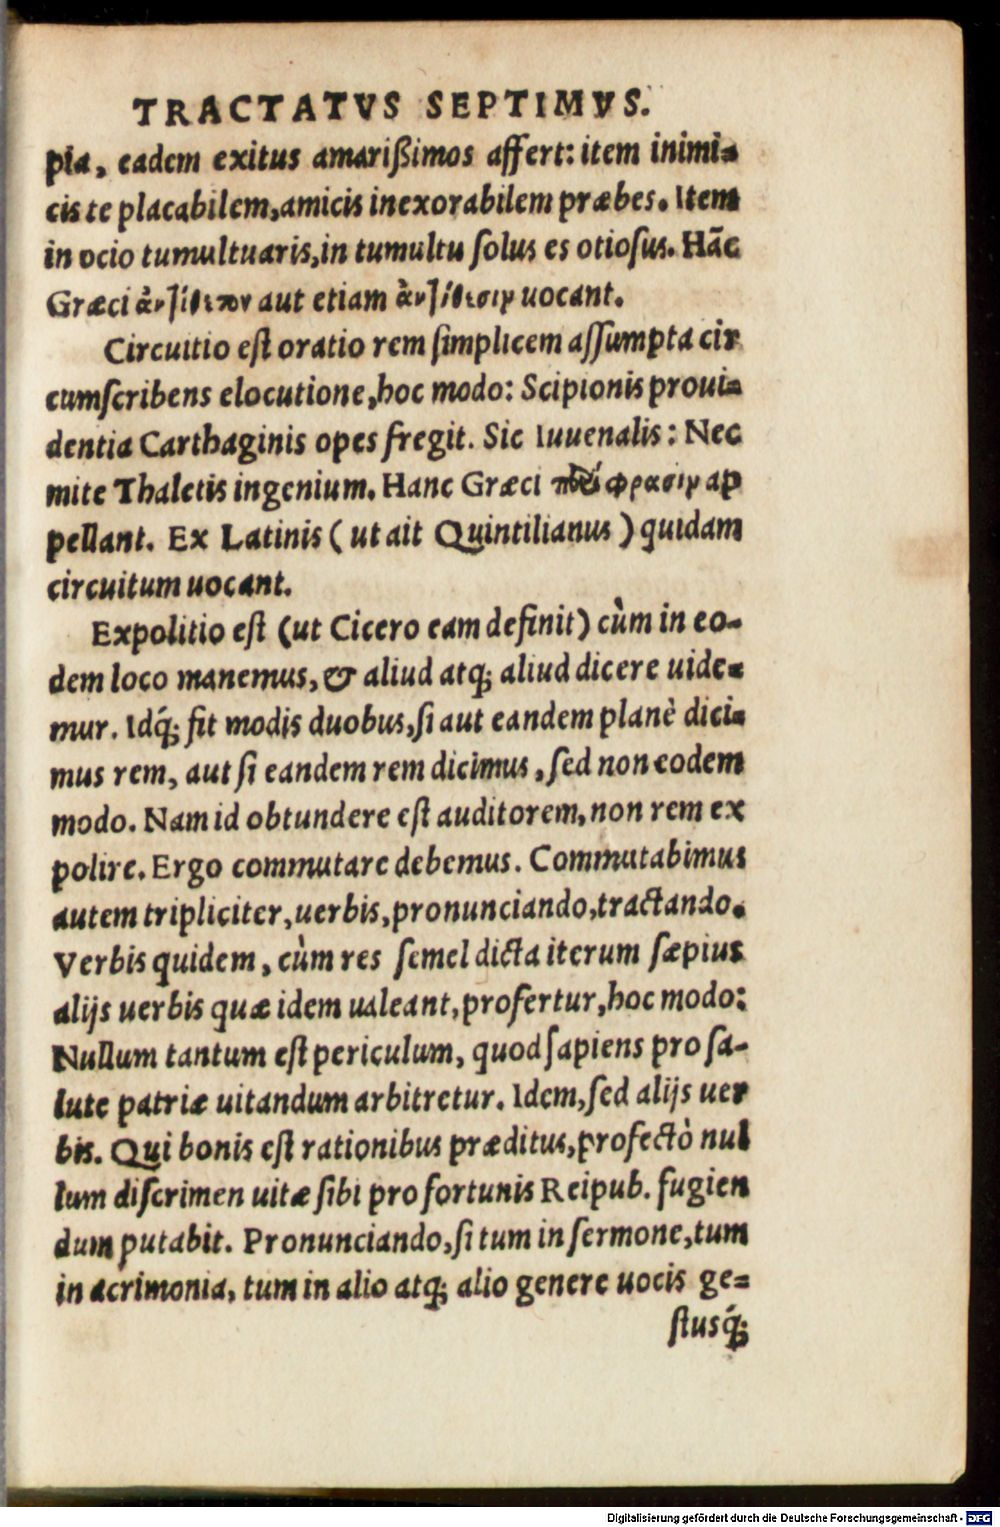 TRACTATVS SEPTIMVS.
pia, eadem exitus amarißimos affert: item inimi-
cis te placabilem, amicis inexorabilem præbes. Item
in ocio tumultuaris, in tumultu ſolus es otioſus. Hãc
Græci ἀντίθετον aut etiam ἀντίθεσιν uocant.
Circuitio eſt oratio rem ſimplicem aſſumpta cir
cumſcribens elocutione, hoc modo: Scipionis proui-
dentia Carthaginis opes fregit. Sic Iuuenalis: Nec
mite Thaletis ingenium. Hanc Græci περίφρασιν ap
pellant. Ex Latinis (ut ait Quintilianus) quidam
circuitum uocant.
Expolitio eſt (ut Cicero eam definit) cùm in eo-
dem loco manemus, & aliud atq; aliud dicere uide-
mur. Idq́; fit modis duobus, ſi aut eandem planè dici-
mus rem, aut ſi eandem rem dicimus, ſed non eodem
modo. Nam id obtundere eſt auditorem, non rem ex
polire. Ergo commutare debemus. Commutabimus
autem tripliciter, uerbis, pronunciando, tractando.
Verbis quidem, cùm res ſemel dicta iterum ſæpius
alijs uerbis quæ idem ualeant, profertur, hoc modo:
Nullum tantum eſt periculum, quod ſapiens pro ſa-
lute patriæ uitandum arbitretur. Idem, ſed alijs uer
bis. Qui bonis eſt rationibus præditus, profectò nul
lum diſcrimen uitæ ſibi pro fortunis Reipub. fugien
dum putabit. Pronunciando, ſi tum in ſermone, tum
in acrimonia, tum in alio atq; alio genere uocis ge-
ſtusq́;
Digitalisierung gefördert durch die Deutsche Forschungsgemeinschaft - DFG